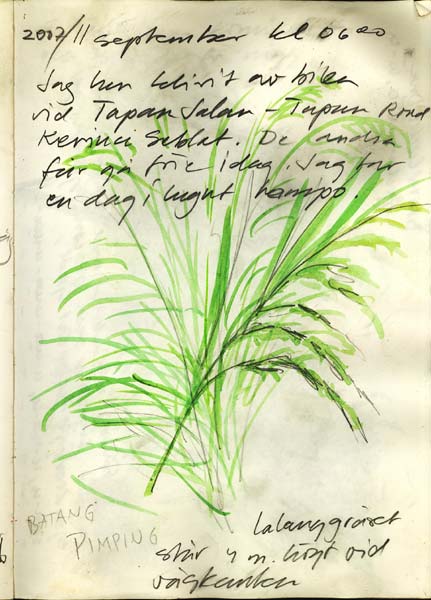 2007/11 september kl 06⁰⁰
Jag har klivit av bilen
vid Tapan Jalan - Tapan Road
Kerinci Seblat. De andra
får gå före idag. Jag tar
en dag i lugnt tempo.
BATANG
PIMPING
Lalanggräset
står 4 m. högt vid
vägkanten